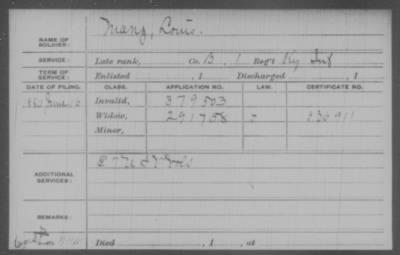 NAME OF SOLDIER: Mang, Louis.
SERVICE: Late rank, Co. B, 1 Reg't Ky Inf
TERM OF SERVICE: Enlisted , 1 Discharged , 1
DATE OF FILING. CLASS. APPLICATION NO. LAW. CERTIFICATE NO.
1880 June Invalid, 379503
Widow, 291758
Minor,
ADDITIONAL SERVICES:
REMARKS:
Died , 1 , at